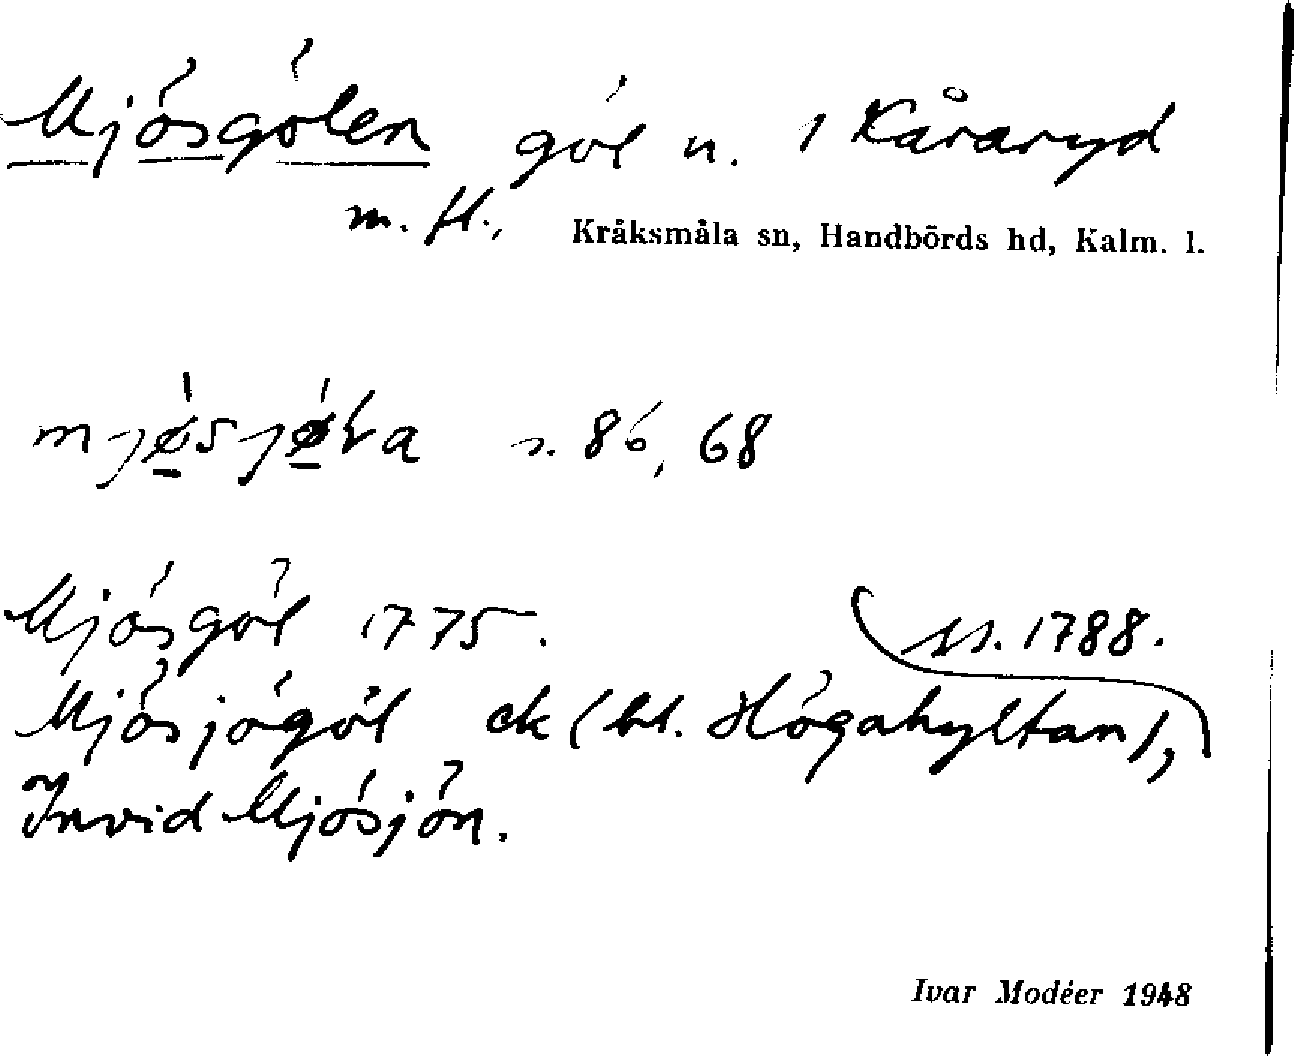 Mjösgölen göl n. i Kåraryd
m. fl., Kråksmåla sn, Handbörds hd, Kalm. l.
mjø̱sjø̱ka s. 86, 68
Mjösgöl 1775. ss. 1788.
Mjösjögöl ek (bl. Högahyltan),
Invid Mjösjön.
Ivar Modéer 1948